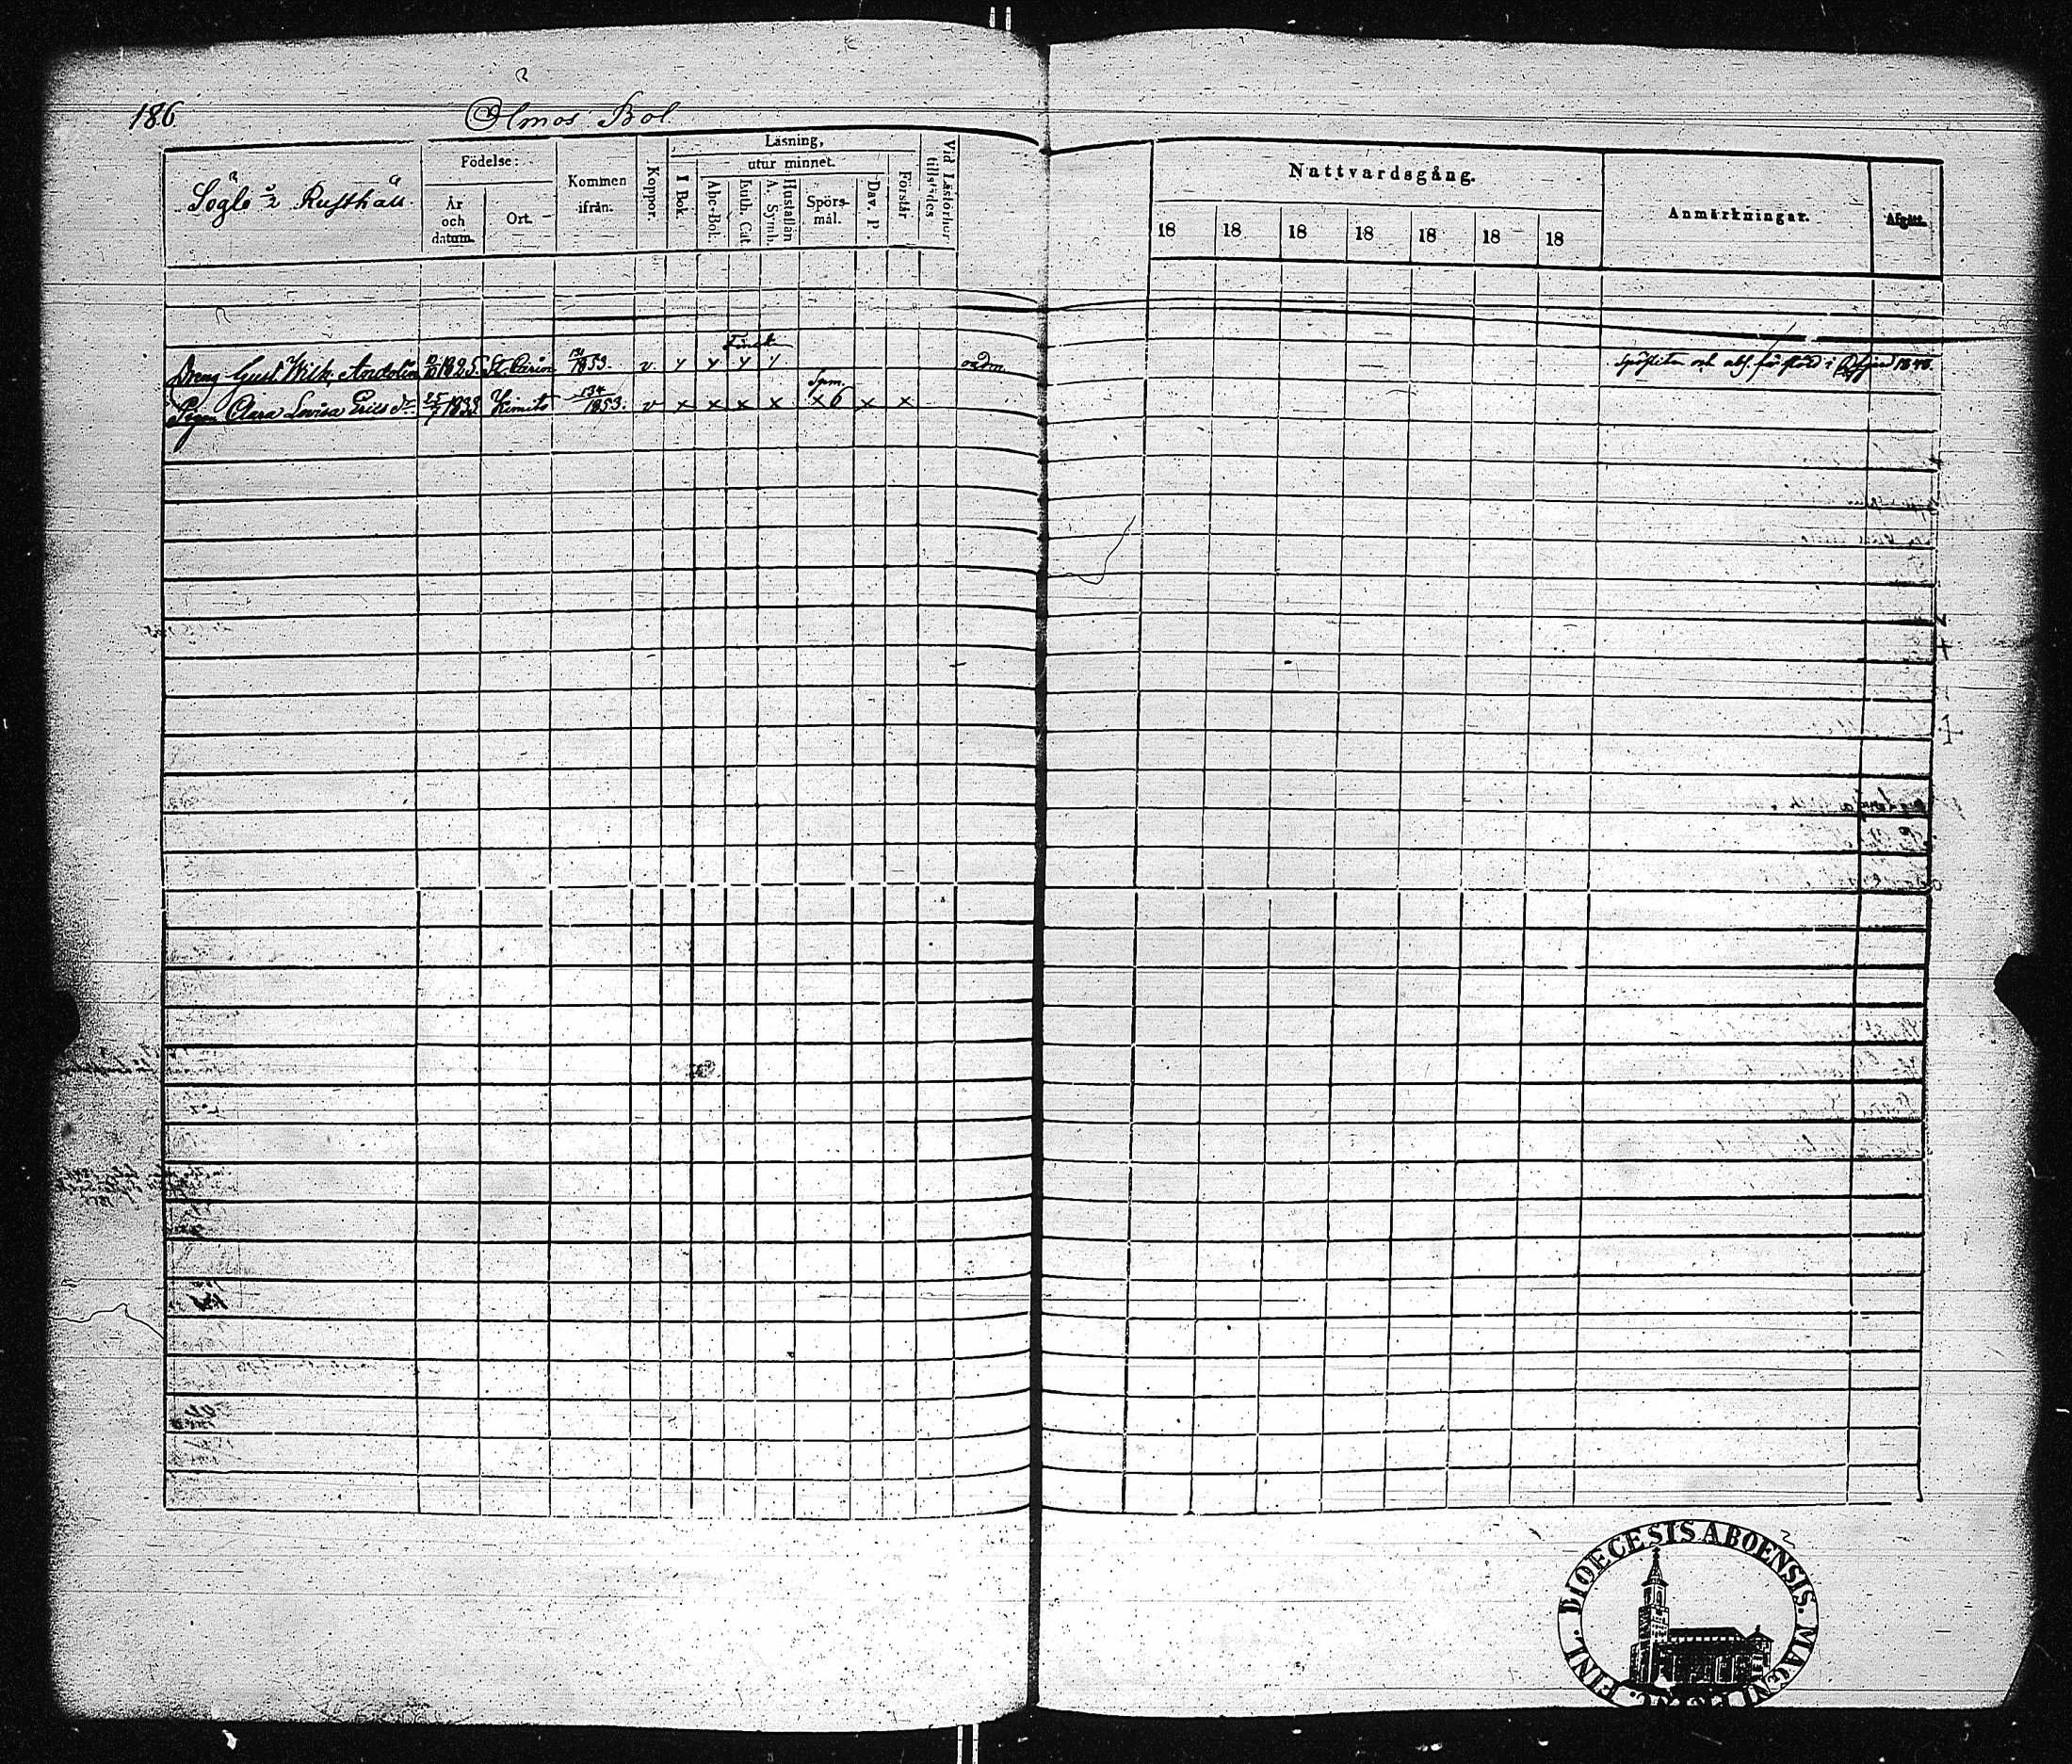 186.
Olmos Bol.
Söglö 2/3 Rusthåll.
Födelse:
År och datum.
Ort.
Kommen ifrån.
Koppor.
Läsning,
I Bok.
utur minnet.
Abc-Bok.
Luth. Cat.
Hustaflan A. Symb.
Spörsmål.
Dav. P.
Förstår
Vid Läsförhör tillstädes
Nattvardsgång.
18 18 18 18 18 18 18
Anmärkningar.
Afgått.
Finsk
Dreng Gust. Wilh. Andelin 1825. St. Karins 1853. v.
Spm.
Pigan Clara Lovisa Ericsdr 25/7 1833 Kimito 134/1853. v x x x x x 6 x x
DIOECESIS ABOENSIS. MAGNI DUC. FINL.